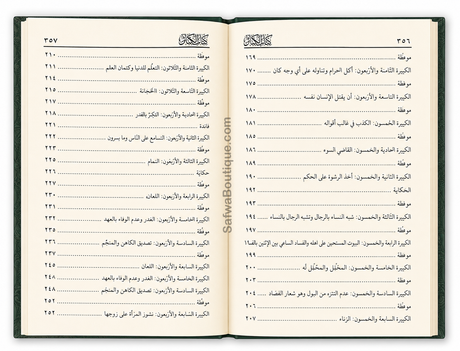 ٣٥٦ كتاب الكبائر
موعظة ١٦٩
الكبيرة الثامنة والأربعون: أكل الحرام وتناوله على أي وجه كان ١٧٠
موعظة ١٧٥
الكبيرة التاسعة والأربعون: أن يقتل الإنسان نفسه ١٧٨
موعظة ١٨٠
الكبيرة الخمسون: الكذب في غالب أقواله
موعظة ١٨٥
الكبيرة الحادية والخمسون: القاضي السوء
موعظة ١٨٩
الكبيرة الثانية والخمسون: أخذ الرشوة على الحكم ١٩٠
الحكاية ١٩٣
موعظة ١٩٣
الكبيرة الثالثة والخمسون: شبه النساء بالرجال وتشبه الرجال بالنساء ١٩٤
الكبيرة الرابعة والخمسون: الديوث المستحسن على أهله والقساد الساعي بين الإثنين بالفساد
موعظة ١٩٩
الكبيرة الخامسة والخمسون: المحلل والمحلل له ٢٠٠
موعظة ٢٠٣
الكبيرة السادسة والخمسون: عدم التنزه من البول وهو شعار النصارى ٢٠٤
موعظة
الكبيرة السابعة والخمسون: الرياء ٢٠٧
كتاب الكبائر ٣٥٧
موعظة ٢١٠
الكبيرة الثامنة والثلاثون: التعلم للدنيا وكتمان العلم ٢١١
موعظة ٢١٤
الكبيرة التاسعة والثلاثون: الخيانة ٢١٥
موعظة ٢١٧
الكبيرة الحادية والأربعون: التكذيب بالقدر ٢١٨
فائدة ٢٢١
الكبيرة الثانية والأربعون: التسامع على الناس وما يسرون ٢٢٢
موعظة ٢٢٣
الكبيرة الثالثة والأربعون: النمام ٢٢٥
حكاية
موعظة
الكبيرة الرابعة والأربعون: اللعان ٢٣٠
موعظة ٢٣١
الكبيرة الخامسة والأربعون: الغدر وعدم الوفاء بالعهد
موعظة
الكبيرة السادسة والأربعون: تصديق الكاهن والمنجم
موعظة
الكبيرة السابعة والأربعون: اللعان ٢٤٥
الكبيرة الخامسة والأربعون: الغدر وعدم الوفاء بالعهد ٢٤٨
الكبيرة السادسة والأربعون: تصديق الكاهن والمنجم ٢٤٨
موعظة ٢٥٢
الكبيرة السابعة والأربعون: نشوز المرأة على زوجها ٢٥٢
SafwaBoutique.com